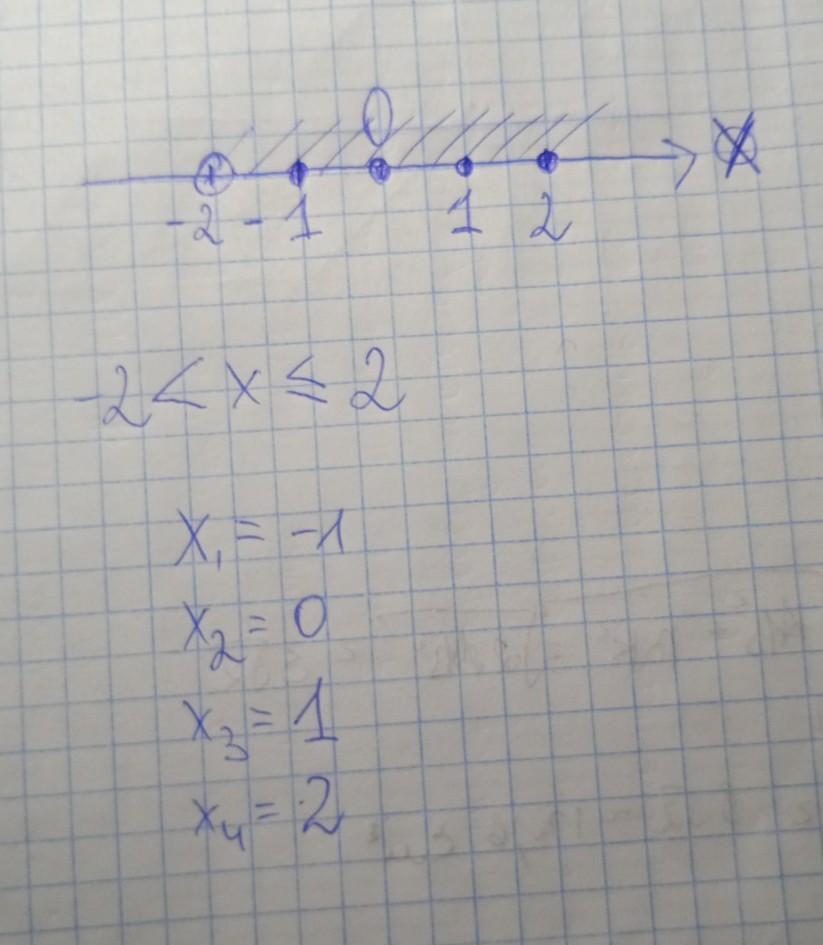 0
X
-2 -1 1 2
-2 < x ≤ 2
x₁ = -1
x₂ = 0
x₃ = 1
x₄ = 2